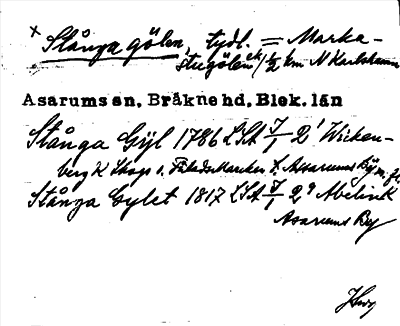 × Stånga gölen, tydl. = Marka-
stugölen ek. 1/2 km N Karlshamn
Asarums sn, Bräkne hd, Blek. län
Stånga Gyl 1786 LSA J/1 2¹ Wicken-
berg K Skogs o. Fäladsmarken t. Assarums By m.fl.
Stånga Gylet 1817 LSA J/1 2⁹ Abelin K
Asarums By